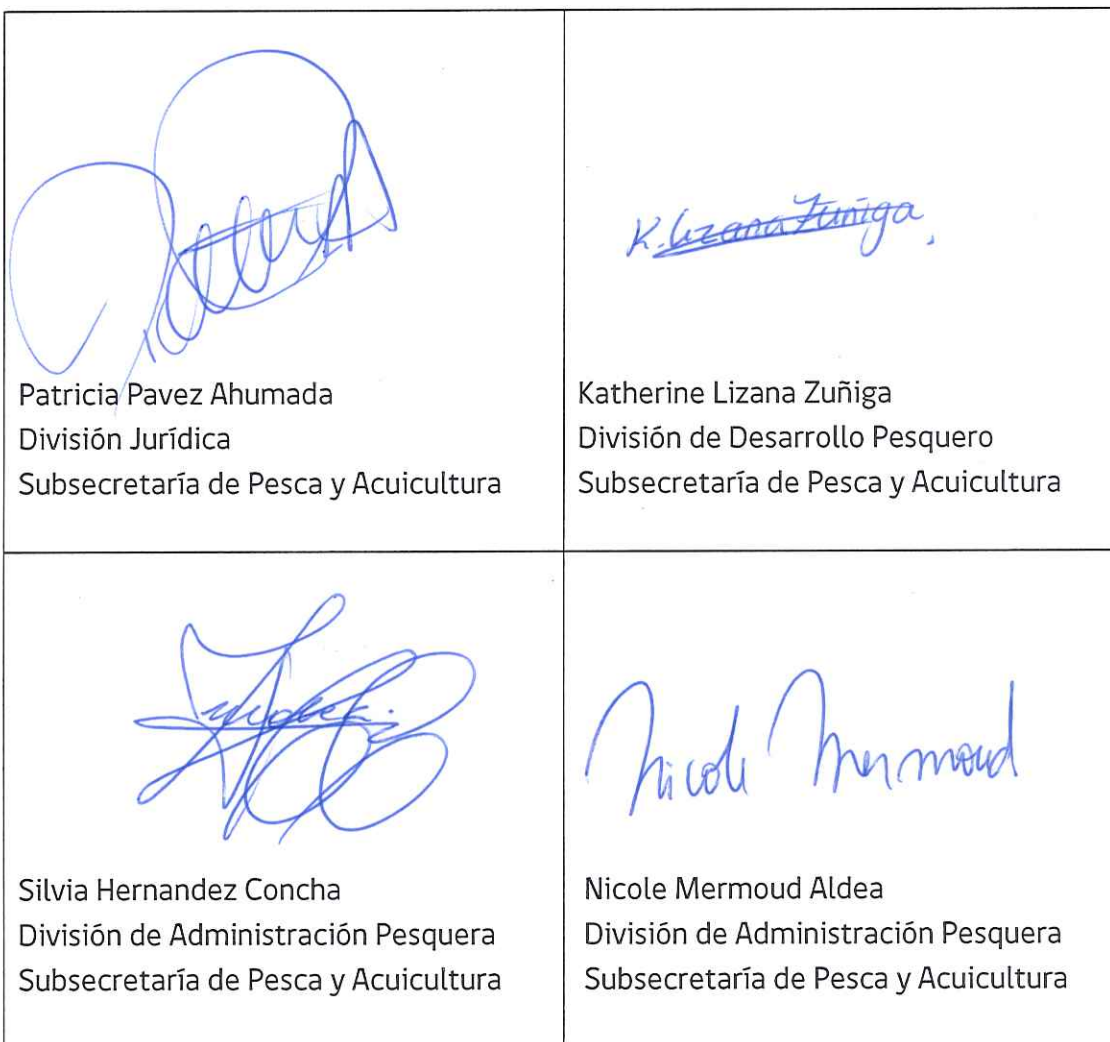 Patricia Pavez Ahumada
División Jurídica
Subsecretaría de Pesca y Acuicultura
K. Lizana Zuñiga
Katherine Lizana Zuñiga
División de Desarrollo Pesquero
Subsecretaría de Pesca y Acuicultura
Silvia Hernandez Concha
División de Administración Pesquera
Subsecretaría de Pesca y Acuicultura
Nicole Mermoud
Nicole Mermoud Aldea
División de Administración Pesquera
Subsecretaría de Pesca y Acuicultura